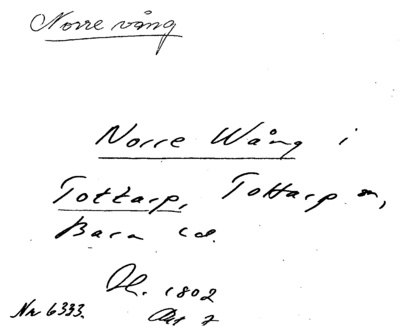 Norre vång
Norre Wång i
Tottarp, Tottarp sn,
Bara hd.
1802
Akt 7
Nr 6333.